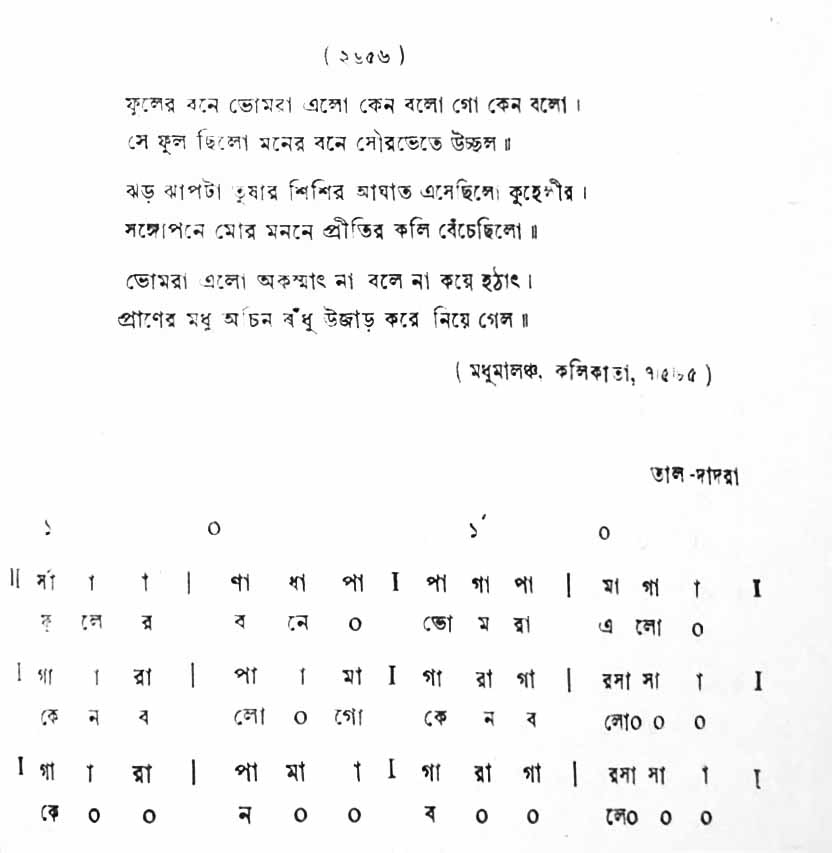 ( ২৬৫৬ )
ফুলের বনে ভোমরা এলো কেন বলো গো কেন বলো ।
সে ফুল ছিলো মনের বনে সৌরভেতে উচ্ছল ॥
ঝড় ঝাপটা তুষার শিশির আঘাত এসেছিলো কুহেলীর ।
সঙ্গোপনে মোর মননে প্রীতির কলি বেঁচেছিলো ॥
ভোমরা এলো অকস্মাৎ না বলে না কয়ে হঠাৎ ।
প্রাণের মধু অচিন বঁধু উজাড় করে নিয়ে গেল ॥
( মধুমালঞ্চ, কলিকাতা, )
তাল -দাদরা
১ ০ ১´ ০
॥ র্সা া া | ণা ধা পা I পা গা পা | মা গা া I
ফু লে র ব নে ০ ভো ম রা এ লো ০
I গা া রা | পা া মা I গা রা গা | রসা সা া I
কে ন ব লো ০ গো কে ন ব লো০ ০ ০
I গা া রা | পা মা া I গা রা গা | রসা সা া I
কে ০ ০ ন ০ ০ ব ০ ০ লো০ ০ ০